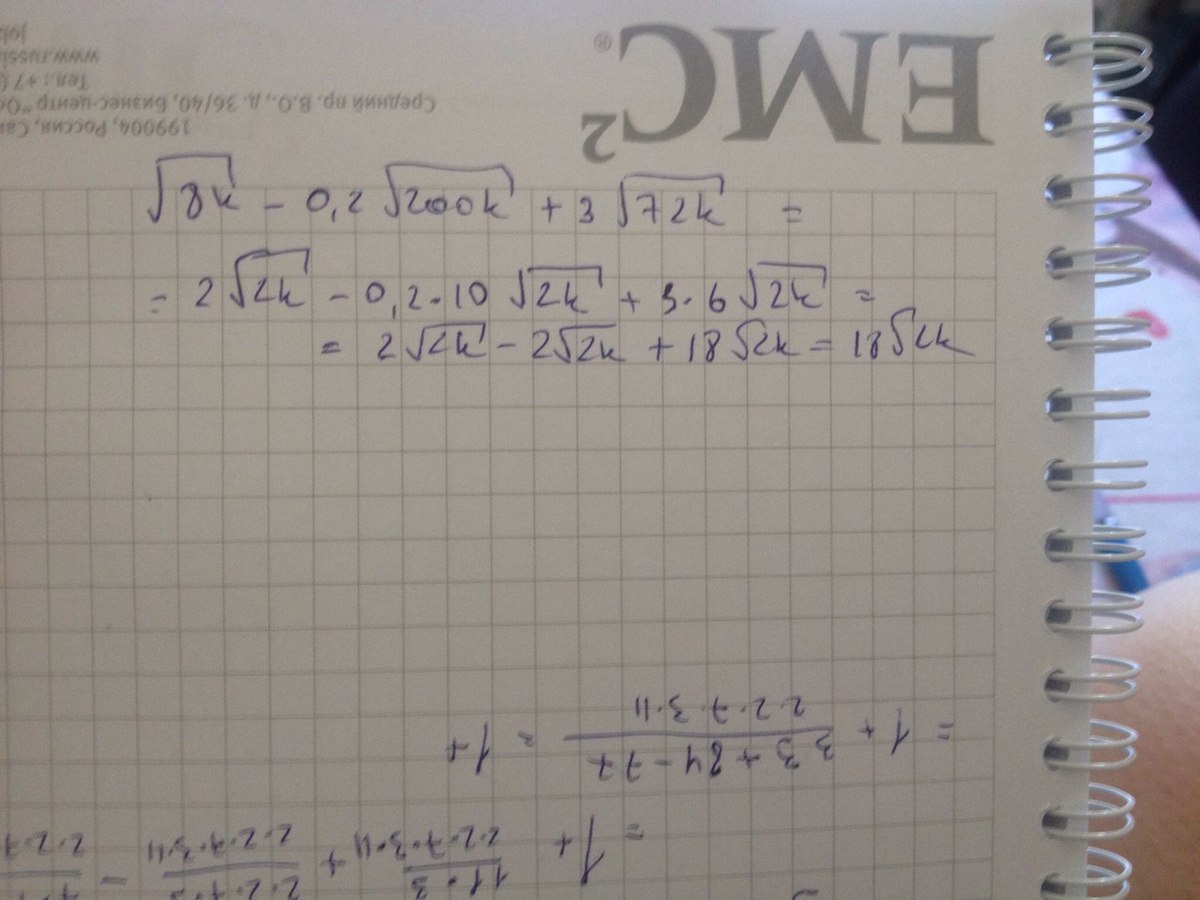 EMC²®
199004, Россия, Сан
Средний пр. В.О., д. 36/40, Бизнес-центр "Ос
Тел.: +7 (
www.russi
job
√8k - 0,2 √200k + 3 √72k =
= 2 √2k - 0,2·10 √2k + 3·6 √2k =
= 2√2k - 2√2k + 18√2k = 18√2k
= 1 + (11·3)/(2·2·7·3·11) + (2·2·7·3)/(2·2·7·3·11) -
= 1 + (33 + 84 - 77)/(2·2·7·3·11) = 1+